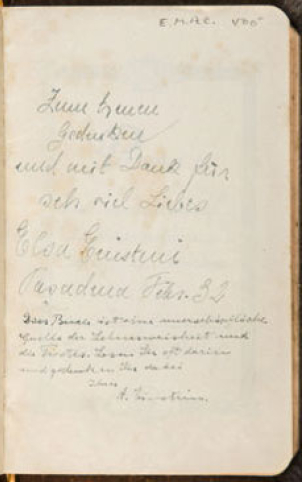 E.M.A.C. V55
Zum treuen
Gedenken
und mit Dank für
seh viel Liebes
Elsa Einstein
Pasadena Febr. 32
Dies Buch ist eine unerschöpfliche
Quelle der Lebensweisheit und
des Trostes. Lesen Sie oft darin
und gedenken Sie dabei
Ihres
A. Einstein.